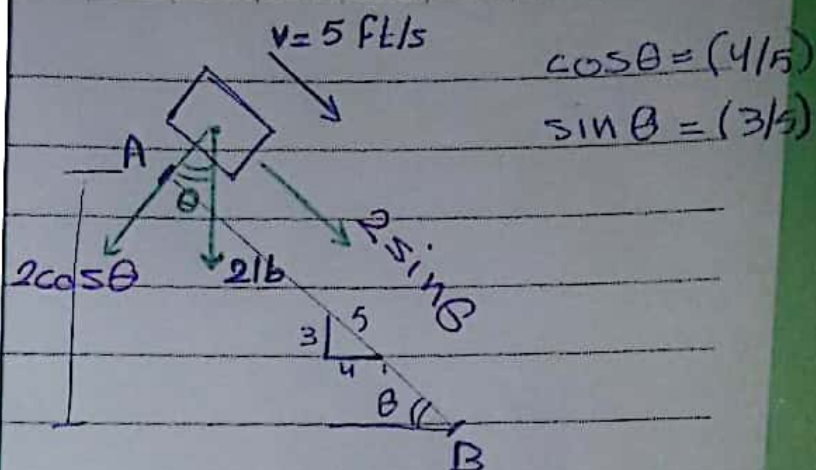 v= 5 ft/s
cosθ = (4/5)
sin θ = (3/5)
A
θ
2cosθ
2lb
2sinθ
5
3
4
θ
B